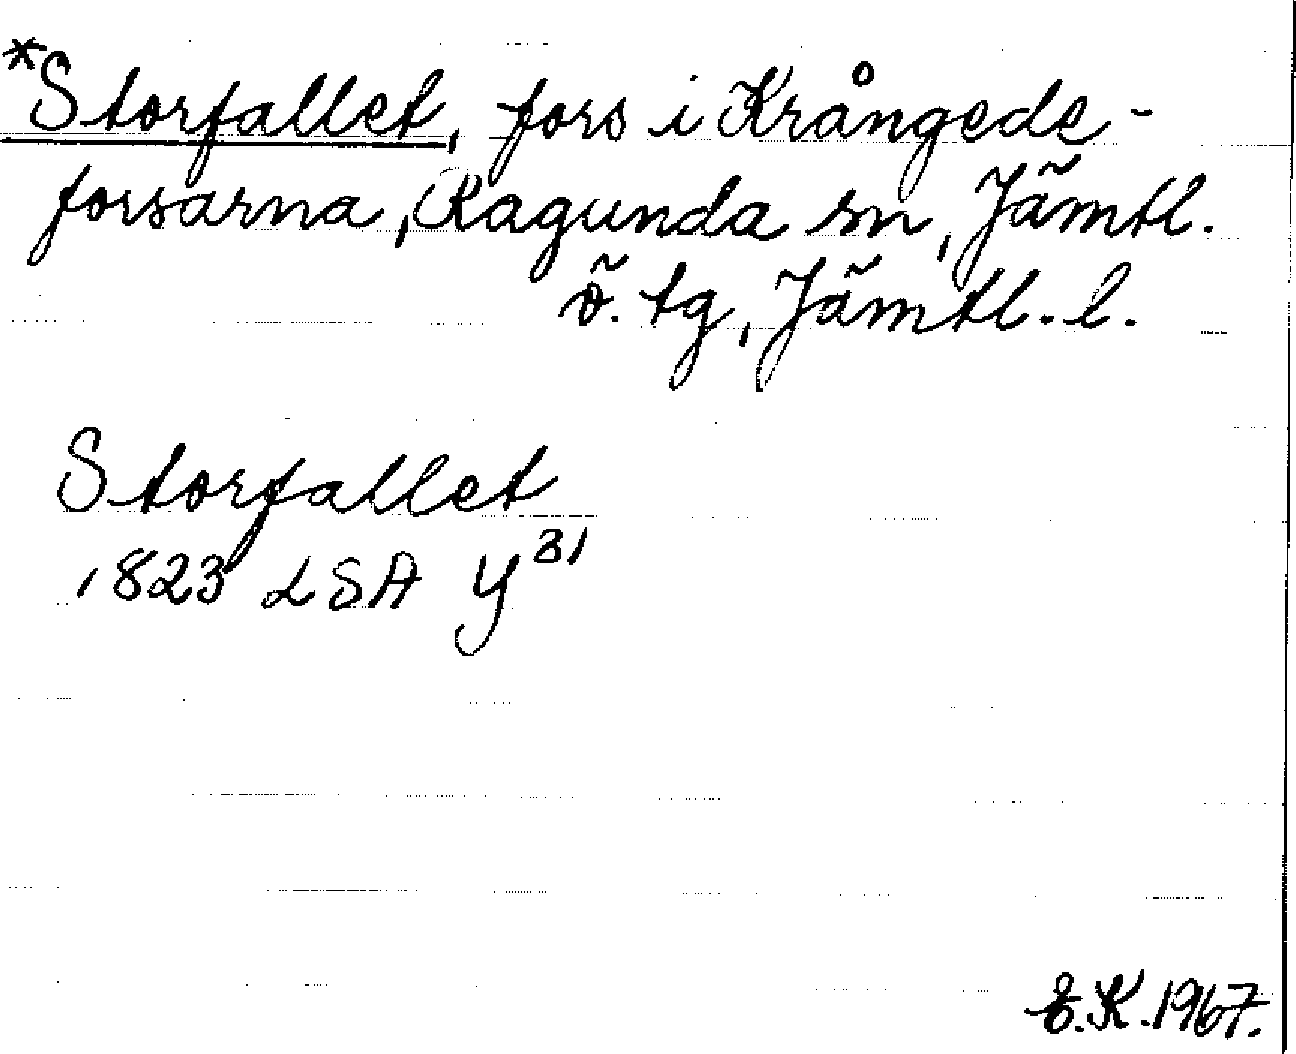 *Storfallet, fors i Krångede-
forsarna, Ragunda sn, Jämtl.
ö. tg, Jämtl. l.
Storfallet
1823 LSA Y31
E.K. 1967.